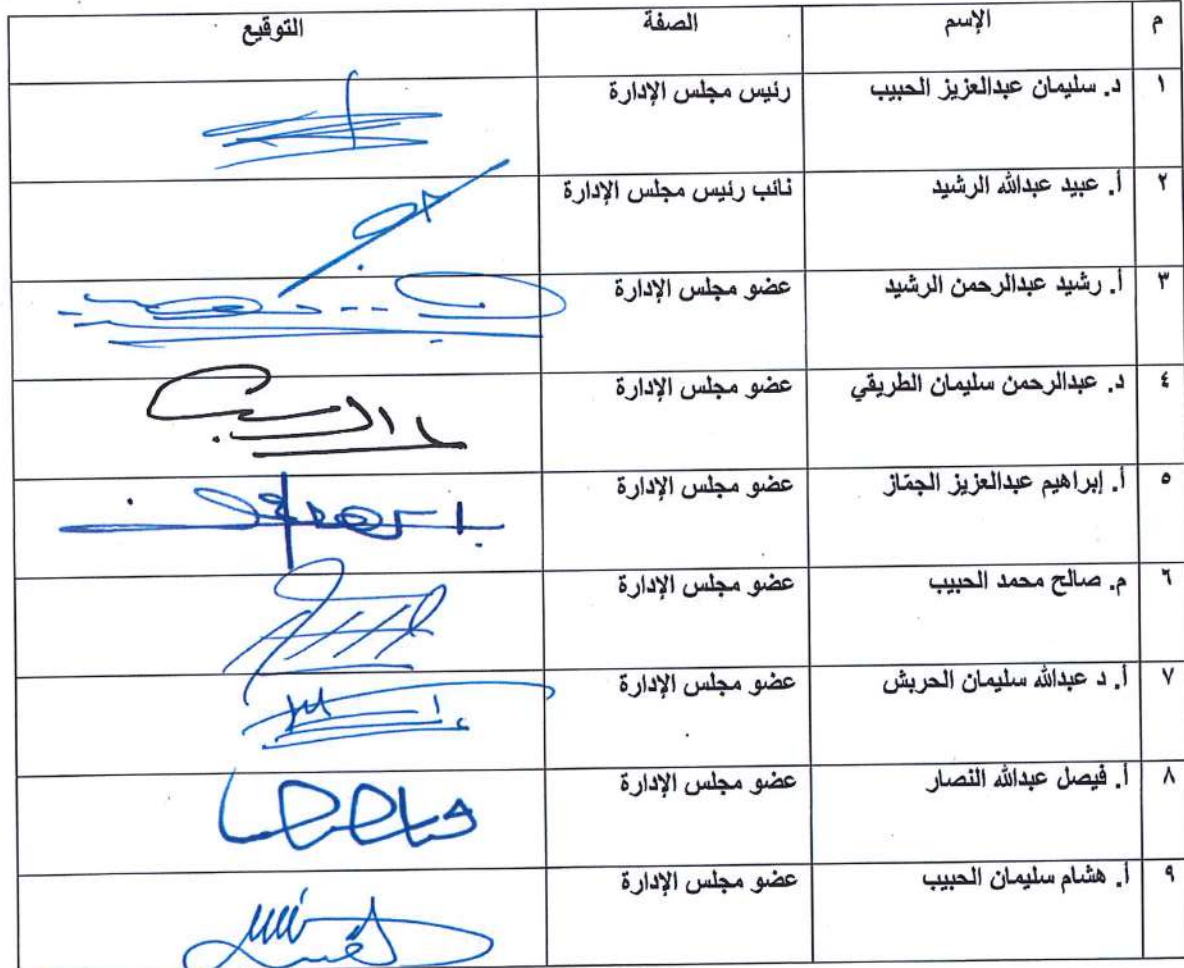 م الإسم الصفة التوقيع
١ د. سليمان عبدالعزيز الحبيب رئيس مجلس الإدارة
٢ أ. عبيد عبدالله الرشيد نائب رئيس مجلس الإدارة
٣ أ. رشيد عبدالرحمن الرشيد عضو مجلس الإدارة
٤ د. عبدالرحمن سليمان الطريقي عضو مجلس الإدارة
٥ أ. إبراهيم عبدالعزيز الجمّاز عضو مجلس الإدارة
٦ م. صالح محمد الحبيب عضو مجلس الإدارة
٧ أ. د عبدالله سليمان الحربش عضو مجلس الإدارة
٨ أ. فيصل عبدالله النصار عضو مجلس الإدارة
٩ أ. هشام سليمان الحبيب عضو مجلس الإدارة